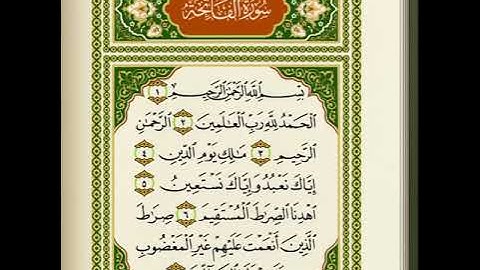 سُورَةُ الْفَاتِحَةِ
بِسْمِ اللَّهِ الرَّحْمَٰنِ الرَّحِيمِ ۝١
الْحَمْدُ لِلَّهِ رَبِّ الْعَالَمِينَ ۝٢ الرَّحْمَٰنِ
الرَّحِيمِ ۝٣ مَالِكِ يَوْمِ الدِّينِ ۝٤
إِيَّاكَ نَعْبُدُ وَإِيَّاكَ نَسْتَعِينُ ۝٥
اهْدِنَا الصِّرَاطَ الْمُسْتَقِيمَ ۝٦ صِرَاطَ
الَّذِينَ أَنْعَمْتَ عَلَيْهِمْ غَيْرِ الْمَغْضُوبِ